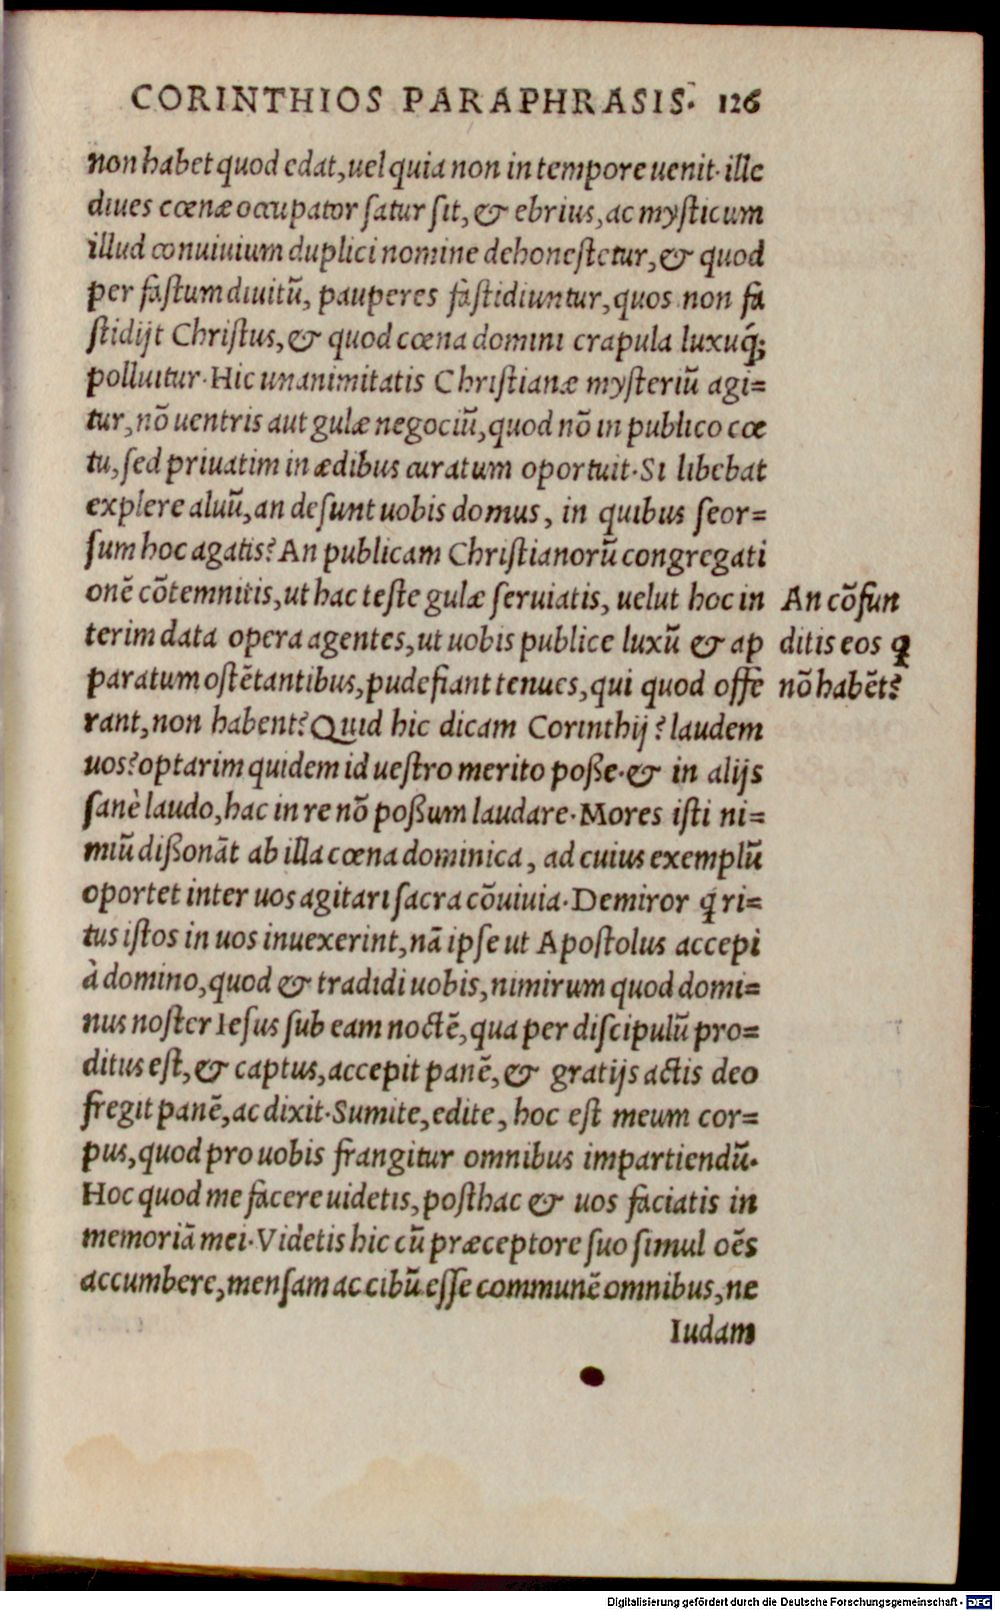 CORINTHIOS PARAPHRASIS. 126
non habet quod edat, uel quia non in tempore uenit. ille
diues cœnæ occupator ſatur ſit, & ebrius, ac myſticum
illud conuiuium duplici nomine dehoneſtetur, & quod
per faſtum diuitũ, pauperes faſtidiuntur, quos non fa
ſtidijt Chriſtus, & quod cœna domini crapula luxuq́;
polluitur. Hic unanimitatis Chriſtianæ myſteriũ agi=
tur, nõ uentris aut gulæ negociũ, quod nõ in publico cœ
tu, ſed priuatim in ædibus curatum oportuit. Si libebat
explere aluũ, an deſunt uobis domus, in quibus ſeor=
ſum hoc agatis? An publicam Chriſtianorũ congregati
onẽ cõtemnitis, ut hac teſte gulæ ſeruiatis, uelut hoc in
terim data opera agentes, ut uobis publice luxũ & ap
paratum oſtẽtantibus, pudefiant tenues, qui quod offe
rant, non habent? Quid hic dicam Corinthij? laudem
uos? optarim quidem id ueſtro merito poße. & in alijs
ſanè laudo, hac in re nõ poßum laudare. Mores iſti ni=
miũ dißonãt ab illa cœna dominica, ad cuius exemplũ
oportet inter uos agitari ſacra cõuiuia. Demiror q̃ ri=
tus iſtos in uos inuexerint, nã ipſe ut Apoſtolus accepi
à domino, quod & tradidi uobis, nimirum quod domi=
nus noſter Ieſus ſub eam noctẽ, qua per diſcipulũ pro=
ditus eſt, & captus, accepit panẽ, & gratijs actis deo
fregit panẽ, ac dixit. Sumite, edite, hoc eſt meum cor=
pus, quod pro uobis frangitur omnibus impartiendũ.
Hoc quod me facere uidetis, poſthac & uos faciatis in
memoriã mei. Videtis hic cũ præceptore ſuo ſimul oẽs
accumbere, menſam ac cibũ eſſe communẽ omnibus, ne
Iudam
An cõfun
ditis eos ꝗ
nõ habẽt?
Digitalisierung gefördert durch die Deutsche Forschungsgemeinschaft - DFG